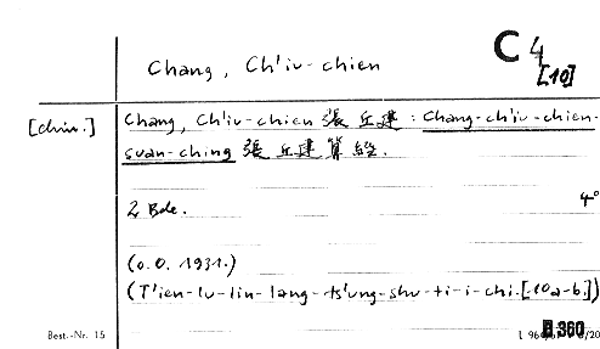 C 4
Chang, Ch'iu-chien
[10]
[chin.]
Chang, Ch'iu-chien 張丘建: Chang-ch'iu-chien-
suan-ching 張丘建算經.
2 Bde.
4°
(o.O. 1931.)
(T'ien-lu-lin-lang-ts'ung-shu-ti-i-chi.[10a-b.])
Best.-Nr. 15
360